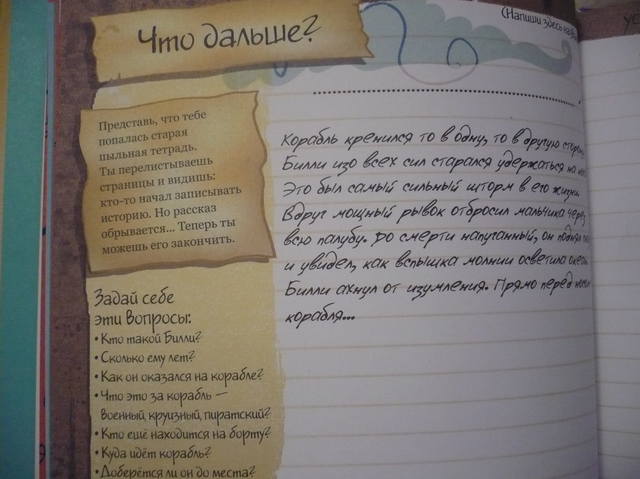 Что дальше?
(Напиши здесь
Представь, что тебе
попалась старая
пыльная тетрадь.
Ты перелистываешь
страницы и видишь:
кто-то начал записывать
историю. Но рассказ
обрывается... Теперь ты
можешь его закончить.
Корабль кренился то в одну, то в другую
Билли изо всех сил старался удержаться на
Это был самый сильный шторм в его жизни
Вдруг мощный рывок отбросил мальчика через
всю палубу. До смерти напуганный, он
и увидел, как вспышка молнии осветила
Билли ахнул от изумления. Прямо перед
корабля...
Задай себе
эти вопросы:
• Кто такой Билли?
• Сколько ему лет?
• Как он оказался на корабле?
• Что это за корабль —
военный, круизный, пиратский?
• Кто ещё находится на борту?
• Куда идёт корабль?
• Доберётся ли он до места?